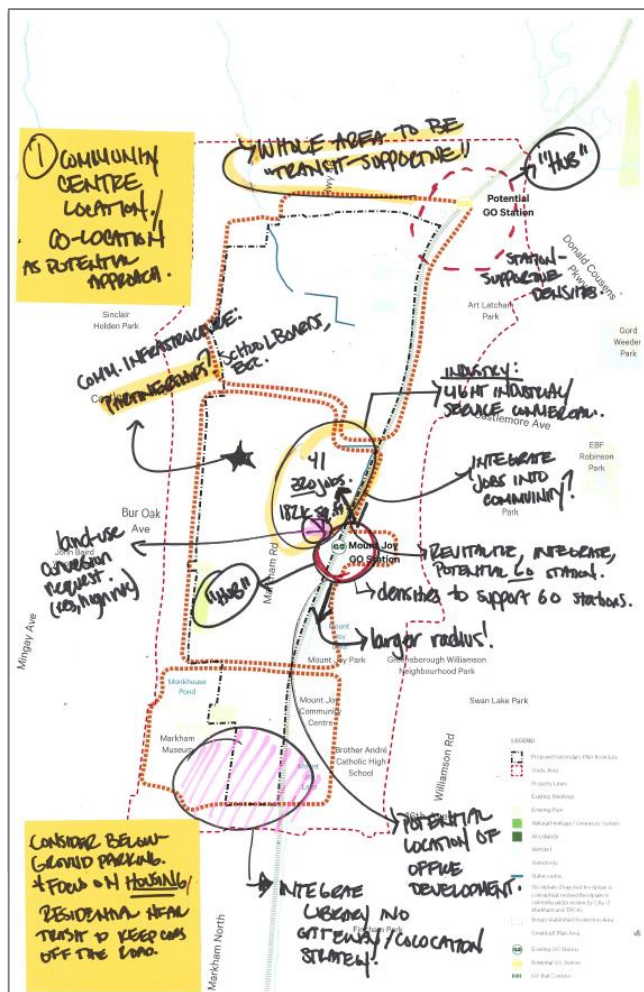 ① COMMUNITY
CENTRE
LOCATION/
CO-LOCATION
AS POTENTIAL
APPROACH.
WHOLE AREA TO BE
"TRANSIT-SUPPORTIVE"
"HUB"
Potential
GO Station
STATION-
SUPPORTIVE
DENSITIES.
Donald Cousens
Pkwy
Art Latcham
Park
Gord
Weeder
Park
Sinclair
Holden Park
COMM. INFRASTRUCTURE.
PARTNERSHIPS? SCHOOL BOARDS,
ETC.
INDUSTRY:
LIGHT INDUSTRIAL/
SERVICE COMMERCIAL.
Castlemore Ave
EBF
Robinson
Park
41
220 jobs.
182K sq. ft
INTEGRATE
JOBS INTO
COMMUNITY?
Park
Bur Oak
Ave
land-use
conversion
request.
(res, high rise)
Markham Rd
Mount Joy
GO Station
REVITALIZE, INTEGRATE,
POTENTIAL GO STATION.
densities to support GO stations.
"HUB"
larger radius!
Mingay Ave
Mount Joy Park
Greensborough Williamson
Neighbourhood Park
Monkhouse
Pond
Mount Joy
Community
Centre
Swan Lake Park
Markham
Museum
Brother André
Catholic High
School
Williamson Rd
POTENTIAL
LOCATION OF
OFFICE
DEVELOPMENT
CONSIDER BELOW-
GROUND PARKING.
+ FOCUS ON HOUSING/
RESIDENTIAL NEAR
TRANSIT TO KEEP CARS
OFF THE ROAD.
INTEGRATE
LIBRARY INTO
GATEWAY/COLOCATION
STRATEGY.
Markham North
LEGEND
Proposed Secondary Plan Boundary
Study Area
Property Lines
Existing Buildings
Existing Park
Natural Heritage / Greenway System
Woodlands
Wetland
Waterbody
Watercourse
Greenbelt Plan Area
Existing GO Station
Potential GO Station
GO Rail Corridor